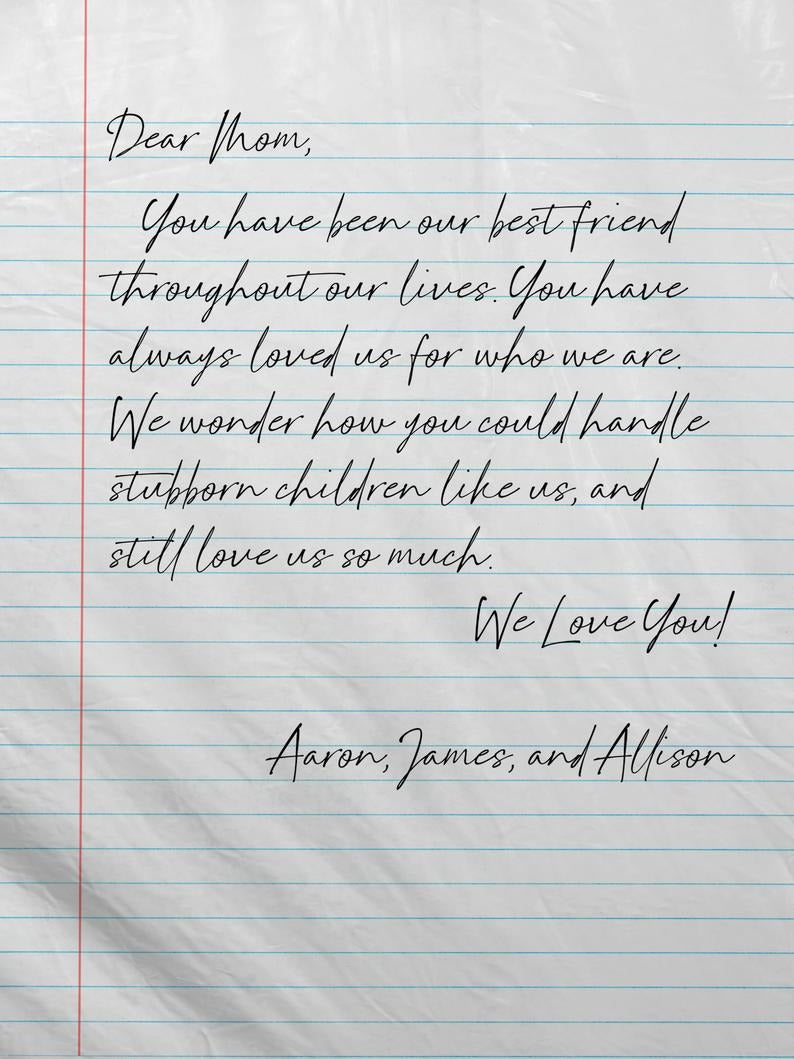 Dear Mom,
You have been our best friend
throughout our lives. You have
always loved us for who we are.
We wonder how you could handle
stubborn children like us, and
still love us so much.
We Love You!
Aaron, James, and Allison